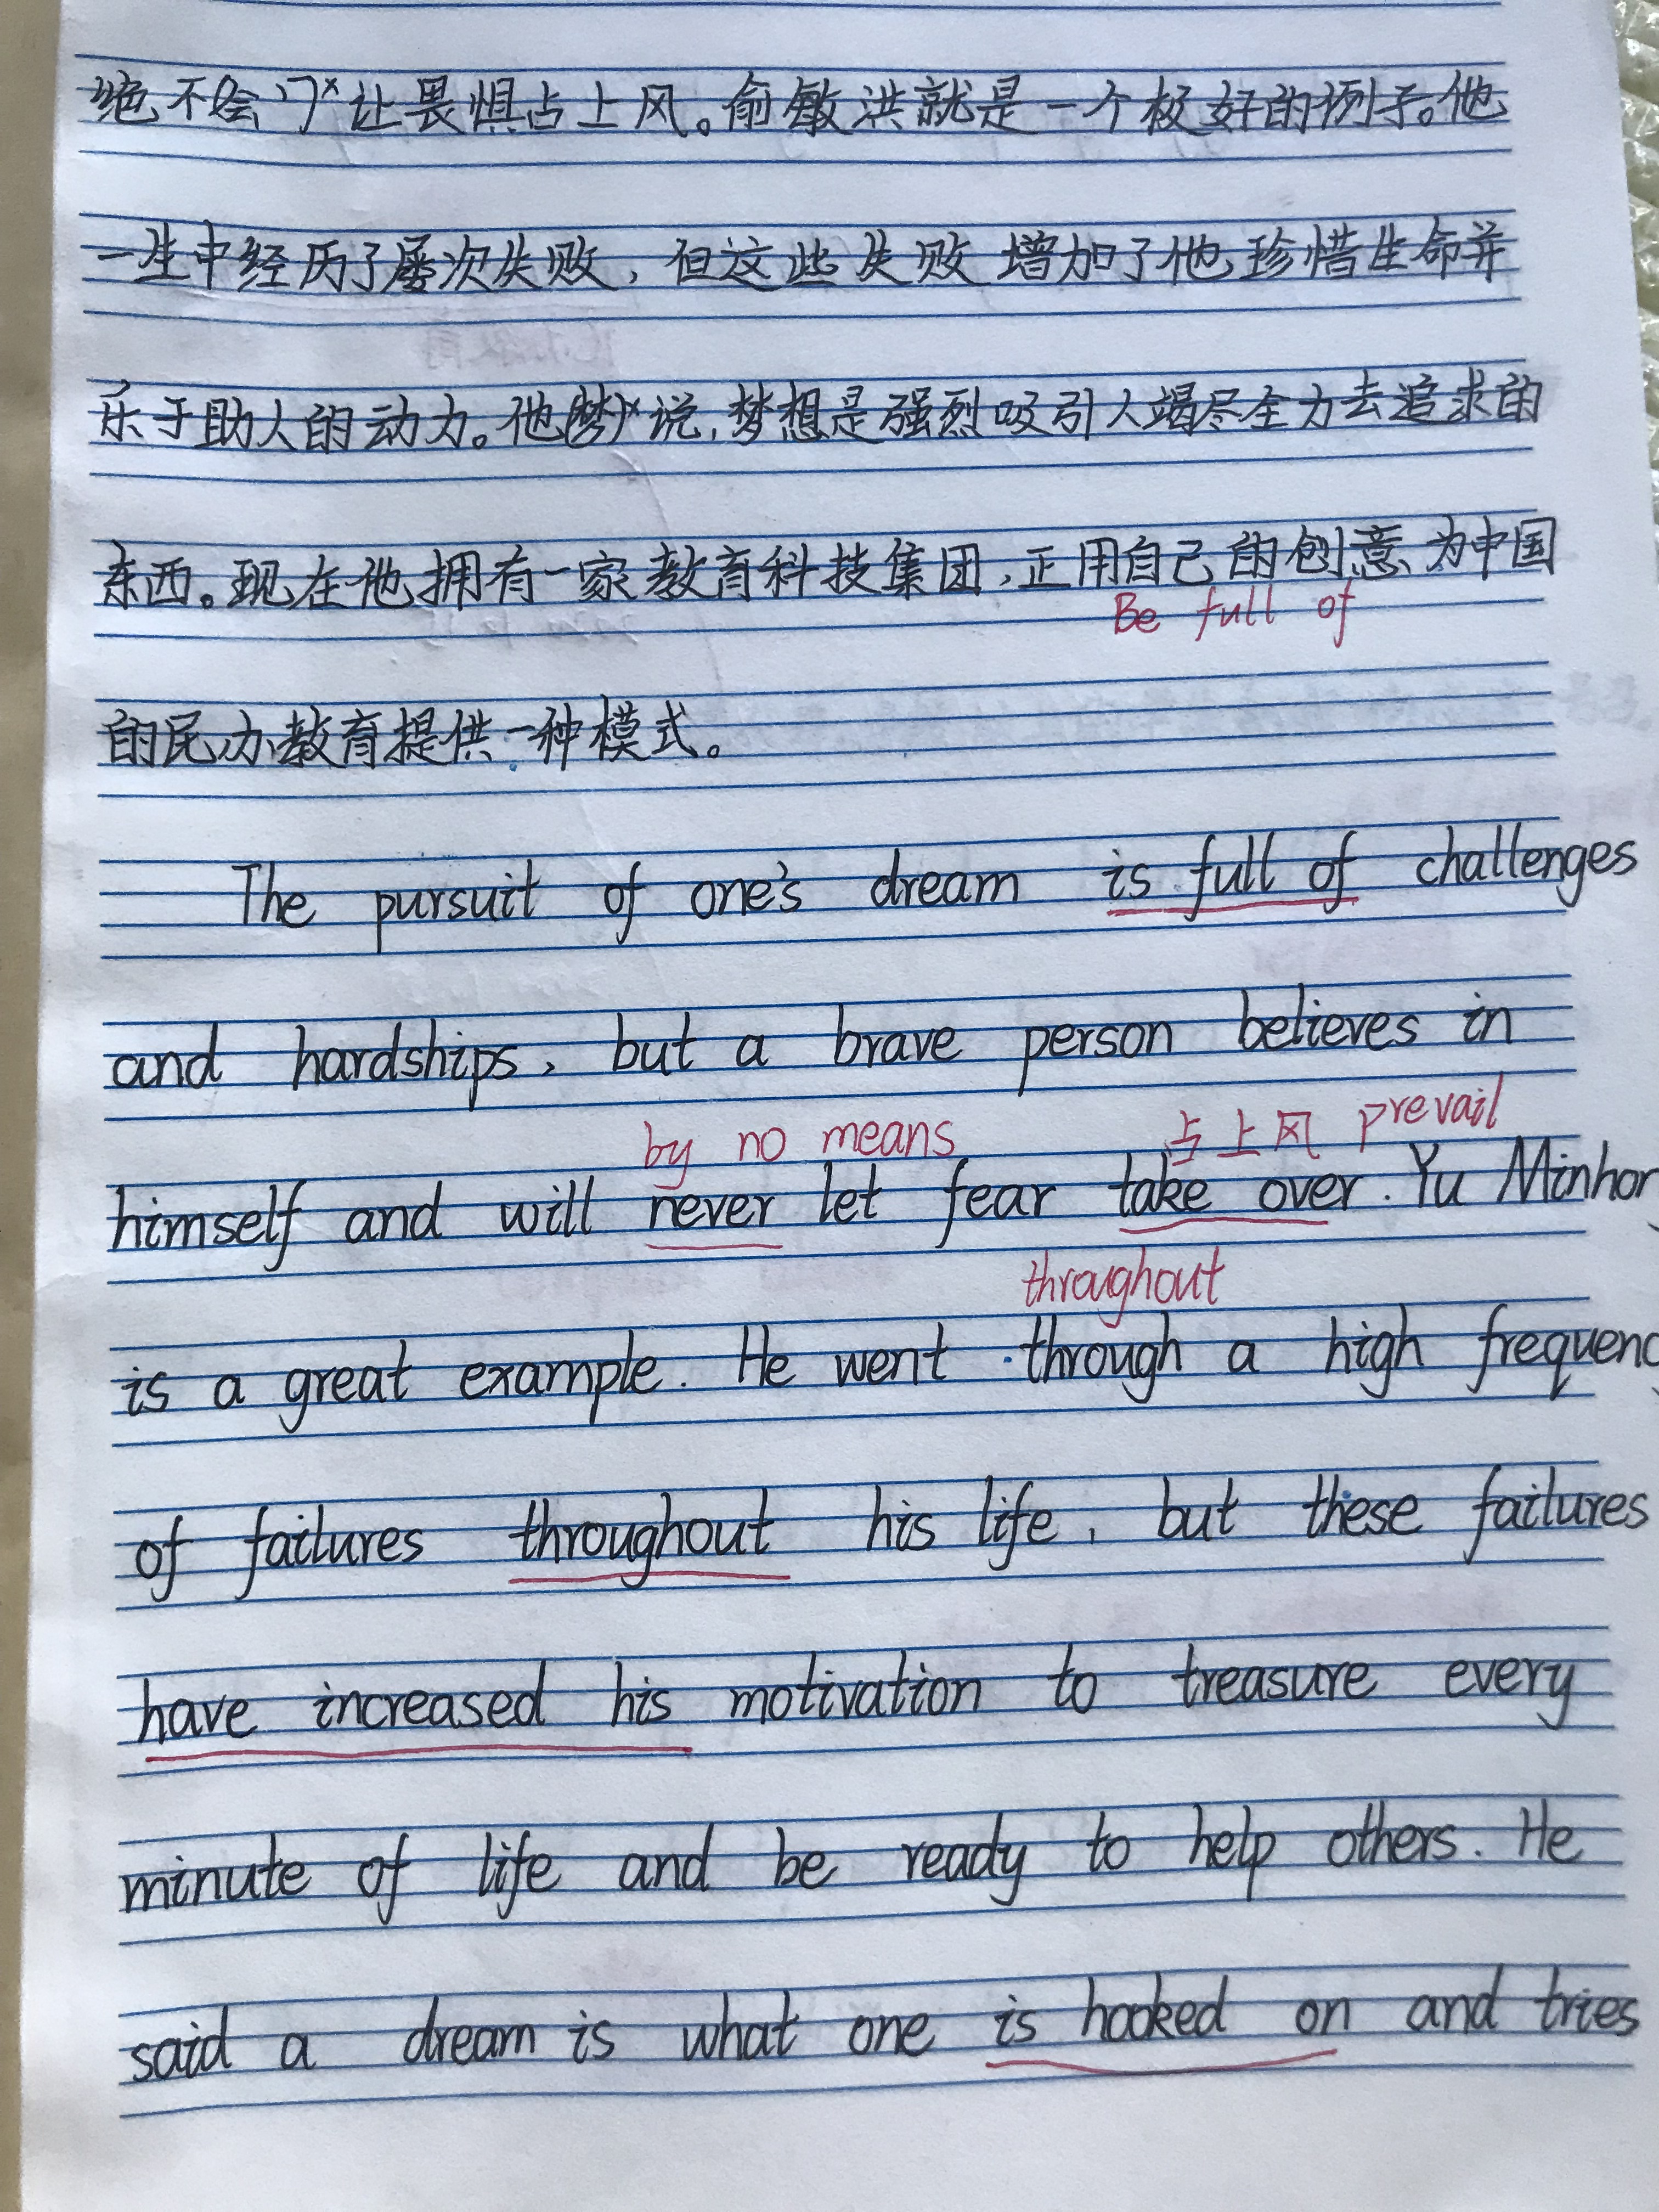 绝不会让畏惧占上风。俞敏洪就是一个极好的例子。他
一生中经历了屡次失败，但这些失败增加了他珍惜生命并
乐于助人的动力。他说，梦想是强烈吸引人竭尽全力去追求的
东西。现在他拥有一家教育科技集团，正用自己的创意为中国
Be full of
的民办教育提供一种模式。
The pursuit of one's dream is full of challenges
and hardships, but a brave person believes in
by no means 占上风 prevail
himself and will never let fear take over. Yu Minhon
throughout
is a great example. He went through a high frequenc
of failures throughout his life, but these failures
have increased his motivation to treasure every
minute of life and be ready to help others. He
said a dream is what one is hooked on and tries